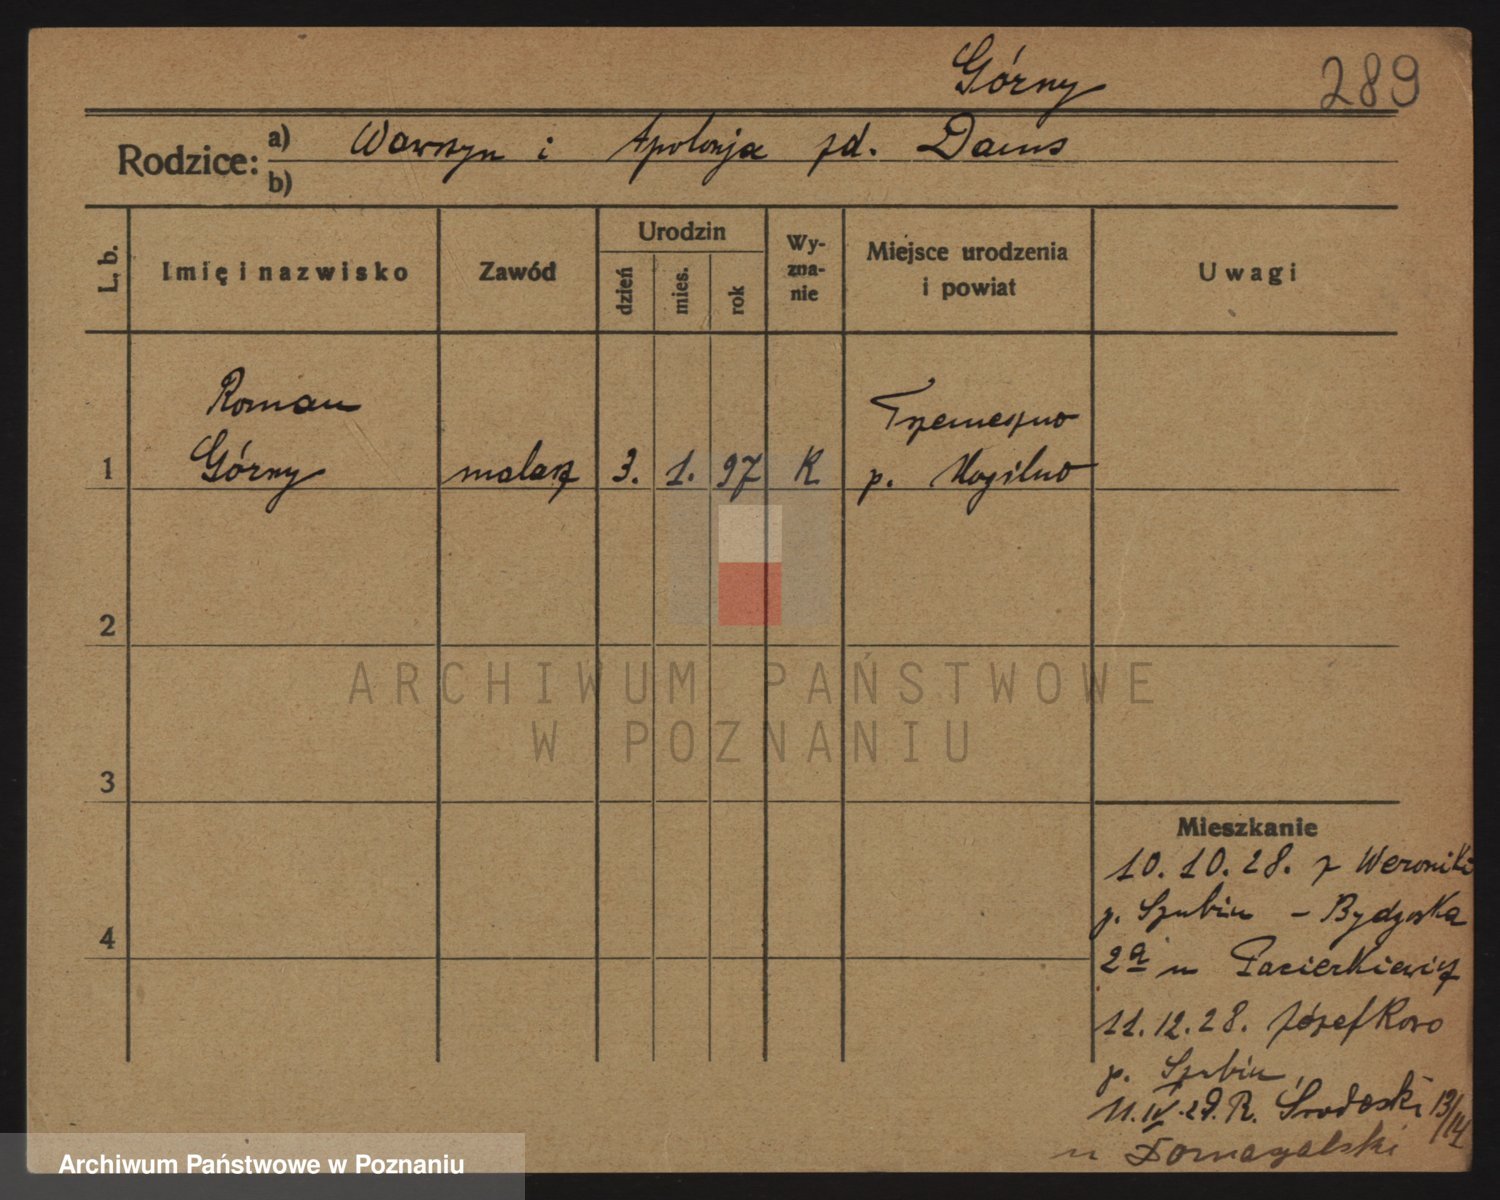 Górny 289
Rodzice: a) Wawrzyn i Apolonja zd. Dams
b)
L. b. Imię i nazwisko Zawód Urodzin dzień mies. rok Wy-zna-nie Miejsce urodzenia i powiat Uwagi
Roman Trzemeszno
1 Górny malarz 3. 1. 97 K p. Mogilno
2
ARCHIWUM PAŃSTWOWE
W POZNANIU
3
Mieszkanie
10.10.28. z Weroniki
p. Szubin - Bydgoska
4
2a u Pacierkiewicz
11.12.28. Józefkowo
p. Szubin
11.IV.29. R. Środeski 13/14
u Domagalski
Archiwum Państwowe w Poznaniu